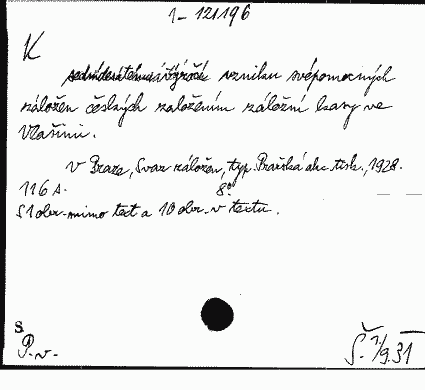 1-121196
K
sedmdesátému výročí vzniku svépomocných
záložen českých založením záložní kasy ve
Vlašimi.
V Praze, Svaz záložen, typ. Pražská akc. tisk., 1928.
116 s. 8°
S 1 obr. mimo text a 10 obr. v textu.
S
P. v.
Š. 1/9.31